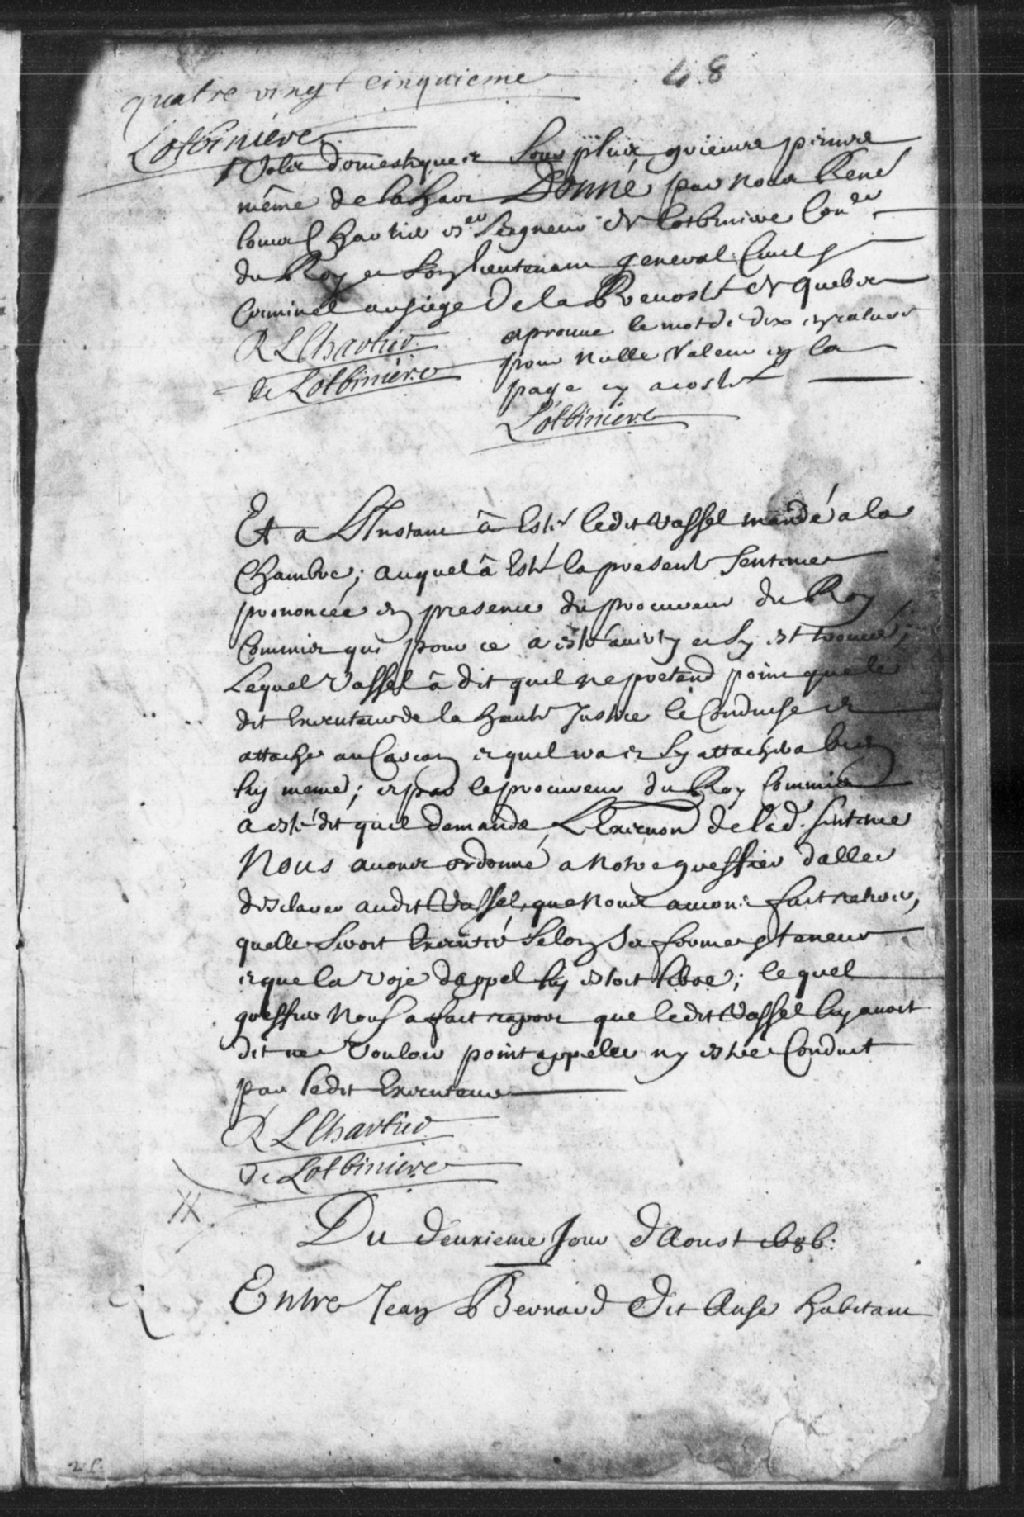 quatre vingt cinquieme
48
Lotbiniere
Voler domestique et sous plus griéuve peinne
même de la hart Donné par nous René
Louis Chartier Eser Seigneur de Lotbiniere Conser
du Roy et Son lieutenant general Civil et
Criminel au siege de la Prevosté de quebec
R L Chartier
de Lotbiniere
aprouué le mot de dix en rature
pour nulle valeur en la
page cy a costé
Lotbiniere
Et a L'Instant â Esté ledit Vassel mandé a la
Chambre; auquel â Esté la presente Sentence
prononcée en presence du procureur du Roy
Commis qui pour ce a esté auerty et sy est trouué;
Lequel Vassel â dit quil ne pretend point que le
dit Executeur de la haute Justice le Conduise et
attache au Carcan et quil ira et sy attachera bien
luy meme; et par le procureur du Roy Commis
a esté dit quil demande L'Execution de lad. sentence
Nous auons ordonné a notre greffier daller
desclarer audit Vassel que nous auions fait retirer,
quelle seroit Executée selon sa forme et teneur
et que la Voje dappel luy estoit libre; lequel
greffier nous a fait raport que ledit Vassel luy auoit
dit ne Vouloir point appeler ny estre Conduit
par ledit Executeur
R L Chartier
de Lotbiniere
Du deuxieme Jour d'Aoust 1686.
Entre Jean Bernard dit Anse habitant